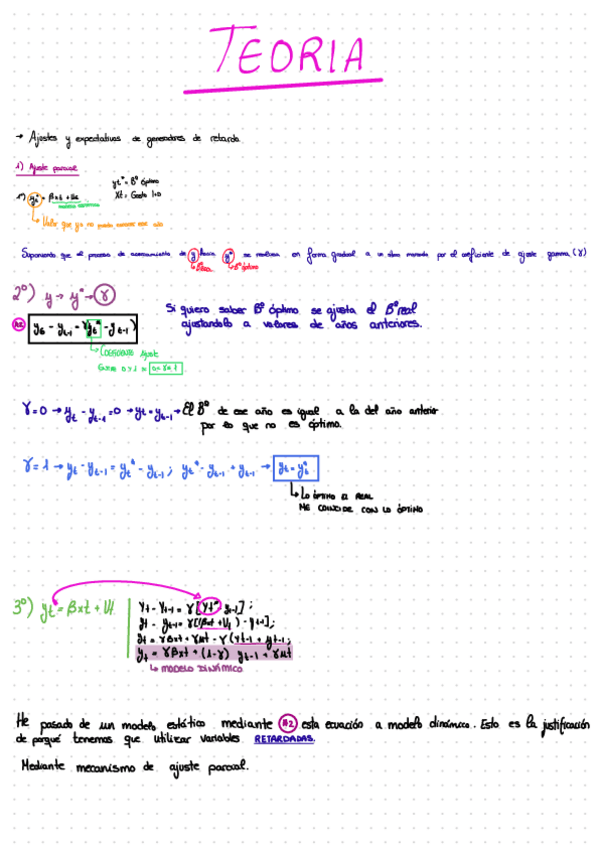 TEORIA
→ Ajustes y expectativas de generadores de retardo
1) Ajuste parcial
yt* = Bº óptimo
Xt = Gasto I+D
1º) yt* = βxt + Ut
Valor que yo no puedo conocer ese año
Suponiendo que el proceso de acercamiento de y hacia y* se realiza en forma gradual a un ritmo marcado por el coeficiente de ajuste gamma (γ)
Bº real
Bº óptimo
2º) y → y* → γ
Si quiero saber Bº óptimo se ajusta el Bº real
ajustandolo a valores de años anteriores.
A2 yt - yt-1 = γ(yt* - yt-1)
Coeficiente Ajuste
γ=0 → yt - yt-1 = 0 → yt = yt-1 → El Bº de ese año es igual a la del año anterior
por lo que no es óptimo.
γ=1 → yt - yt-1 = yt* - yt-1 ; yt* - yt-1 + yt-1 → yt = yt*
Lo óptimo el real
me coincide con lo óptimo
3º) yt* = βxt + Ut
yt - yt-1 = γ[yt* - yt-1];
yt - yt-1 = γ[(βxt + Ut) - yt-1];
yt = γβxt + γut - γ(yt-1 + yt-1;
yt = γβxt + (1-γ) yt-1 + γut
↳ MODELO DINÁMICO
He pasado de un modelo estático mediante A2 esta ecuación a modelo dinámico. Esto es la justificación
de porqué tenemos que utilizar variables RETARDADAS.
Mediante mecanismo de ajuste parcial.